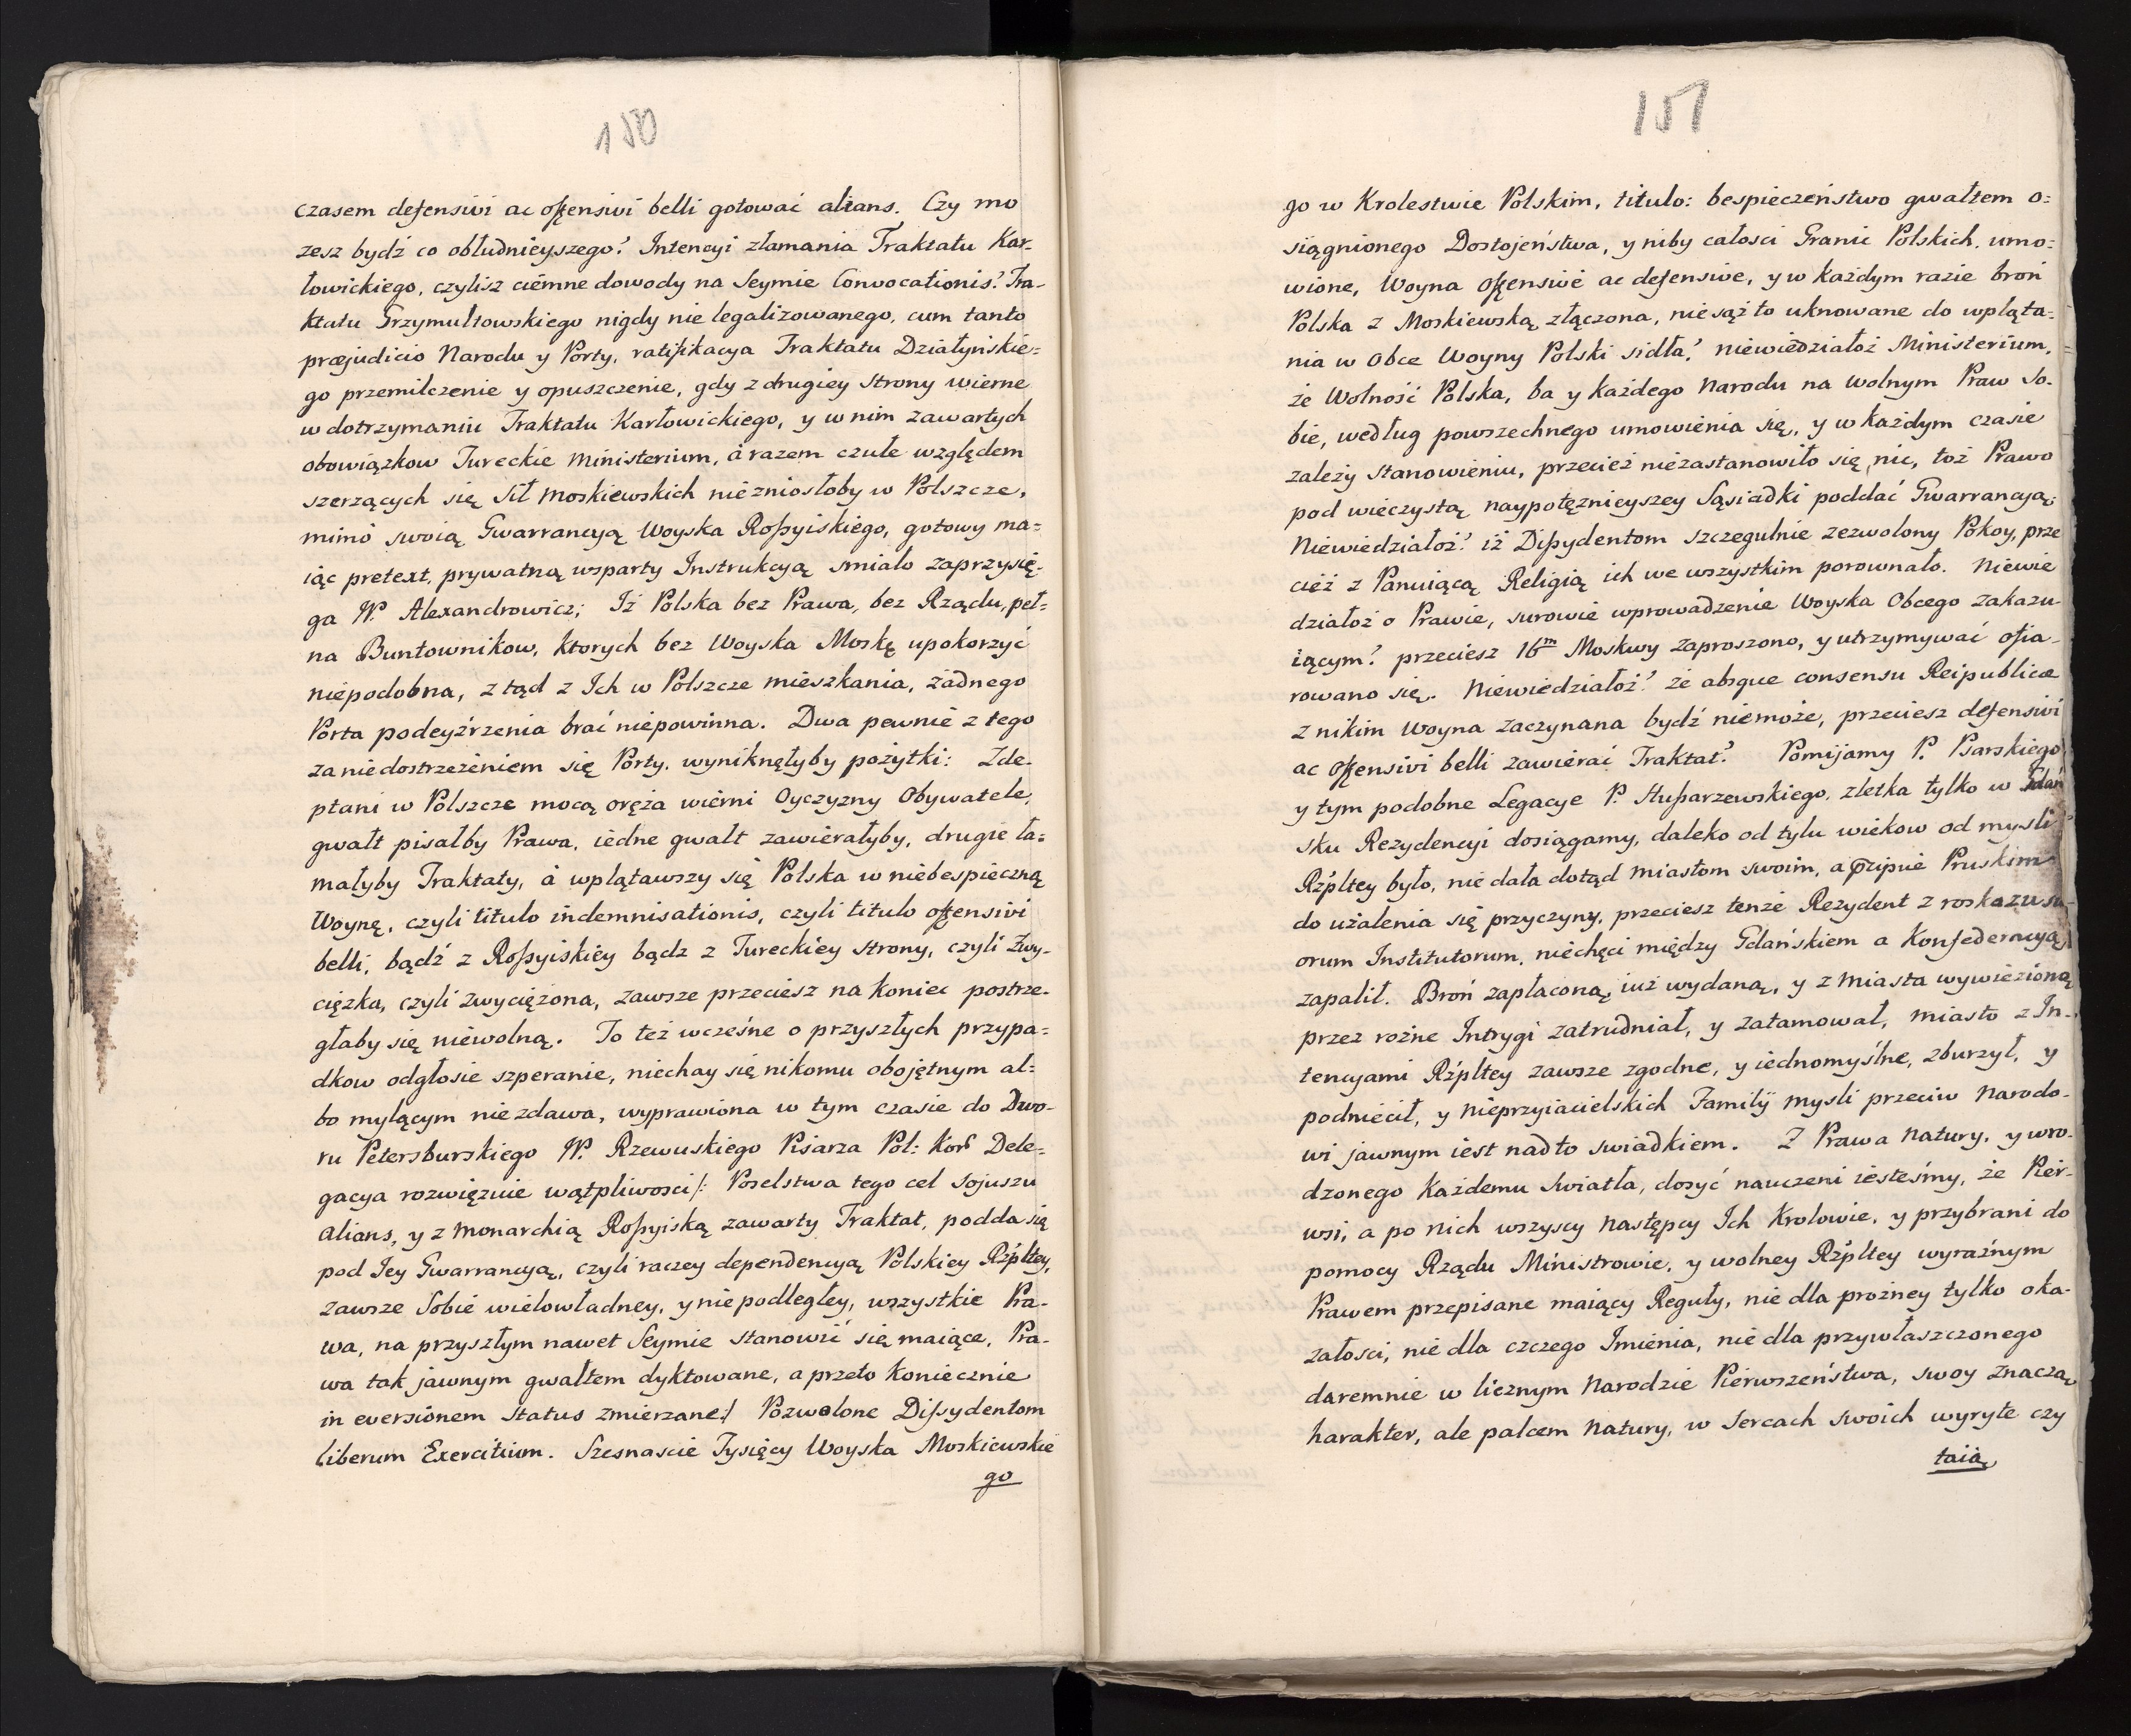 150
czasem defensivi ac offensivi belli gotować alians. Czy mo
zesz bydź co obłudnieyszego? Intencyi złamania Traktatu Kar-
łowickiego, czylisz ciemne dowody na Seymie Convocationis? Tra-
ktatu Grzymułtowskiego nigdy nie legalizowanego, cum tanto
præjudicio Narodu y Porty, ratifikacya Traktatu Działyńskie=
go przemilczenie y opuszczenie, gdy z drugiey strony wierne
w dotrzymaniu Traktatu Karłowickiego, y w nim zawartych
obowiązkow Tureckie Ministerium, á razem czułe względem
szerzących się Sił Moskiewskich niezniosłoby w Polszcze,
mimo swoią Gwarrancyą Woyska Rossyiskiego, gotowy ma=
iąc pretext, prywatną wsparty Instrukcyą smiało zaprzysię-
ga W. Alexandrowicz; Iż Polska bez Prawa, bez Rządu, peł=
na Buntownikow, ktorych bez Woyska Moskę upokorzyć
niepodobna, z tąd z Ich w Polszcze mieszkania, żadnego
Porta podeyźrzenia brać niepowinna. Dwa pewnie z tego
za niedostrzeżeniem się Porty, wyniknęłyby pożytki: Zde-
ptani w Polszcze mocą oręża wierni Oyczyzny Obywatele,
gwałt pisałby Prawa, iedne gwałt zawierałyby, drugie ła=
małyby Traktaty, á wplątawszy się Polska w niebespieczną
Woynę, czyli titulo indemnisationis, czyli titulo offensivi
belli, bądź z Rossyiskiey bądz z Tureckiey strony, czyli Zwy-
ciężka, czyli zwyciężona, zawsze przeciesz na koniec postrze-
głaby się niewolną. To też wczesne o przyszłych przypa=
dkow odgłosie szperanie, niechay się nikomu obojętnym al=
bo mylącym nie zdawa, wyprawiona w tym czasie do Dwo-
ru Petersburskiego W. Rzewuskiego Pisarza Pol: Kor Dele=
gacya rozwięzuie wątpliwosci /: Poselstwa tego cel sojuszu
alians, y z Monarchią Rossyiską zawarty Traktat, podda się
pod Iey Gwarrancyą, czyli raczey dependencyą Polskiey Rzpltey,
zawsze Sobie wielowładney, y niepodległey, wszystkie Pra-
wa, na przyszłym nawet Seymie stanowić się maiące, Pra-
wa tak jawnym gwałtem dyktowane, a przeto koniecznie
in eversionem status zmierzane :/ Pozwolone Dissydentom
liberum Exercitium. Szesnascie Tysięcy Woyska Moskiewskie
go
151
go w Krolestwie Polskim, titulo: bespieczeństwo gwałtem o=
siągnionego Dostojeństwa, y niby całosci Granic Polskich, umo=
wione, Woyna offensive ac defensive, y w każdym razie broń
Polska z Moskiewską złączona, nie sąż to uknowane do wpląta-
nia w obce Woyny Polski sidła? niewiedziałoż Ministerium,
że Wolność Polska, ba y każdego Narodu na wolnym Praw So-
bie, według powszechnego umowienia się, y w każdym czasie
zależy stanowieniu, przecież niezastanowiło się nic, toż Prawo
pod wieczystą naypotęznieyszey Sąsiadki poddać Gwarrancyą.
Niewiedziałoż? iż Dissydentom szczegulnie zezwolony Pokoy, prze
cież z Panuiącą Religią ich we wszystkim porownało. Niewie
działoż o Prawie, surowie wprowadzenie Woyska Obcego zakazu-
iącym? przeciesz 16m Moskwy zaproszono, y utrzymywać ofia-
rowano się. Niewiedziałoż? że absque consensu Reipublicæ
z nikim Woyna zaczynana bydź niemoże, przeciesz defensivi
ac offensivi belli zawierać Traktat? Pomijamy P. Psarskiego
y tym podobne Legacye P. Husarzewskiego, zletka tylko w Gdań
sku Rezydencyi dosiągamy, daleko od tylu wiekow od mysli
Rzpltey było, nie dała dotąd Miastom swoim, a przipuie Pruskim
do użalenia się przyczyny, przeciesz tenże Rezydent z roskazu su-
orum Institutorum, niechęci między Gdańskiem a Konfederacyą
zapalił. Broń zapłaconą, iuż wydaną, y z Miasta wywiezioną
przez rożne Intrygi zatrudniał, y zatamował, miasto z In-
tencyami Rzpltey zawsze zgodne, y iednomyślne, zburzył, y
podniecił, y nieprzyiacielskich Familij mysli przeciw Narodo-
wi jawnym iest nadto swiadkiem. Z Prawa Natury, y wro-
dzonego każdemu Swiatła, dosyć nauczeni iesteśmy, że Pier-
wsi, a po nich wszyscy Następcy Ich Krolowie, y przybrani do
pomocy Rządu Ministrowie, y wolney Rzpltey wyraźnym
Prawem przepisane maiący Reguły, nie dla prożney tylko oka-
załosci, nie dla czczego Imienia, nie dla przywłaszczonego
daremnie w licznym Narodzie Pierwszeństwa, swoy znaczą
harakter, ale palcem Natury, w Sercach Swoich wyryte czy
taią